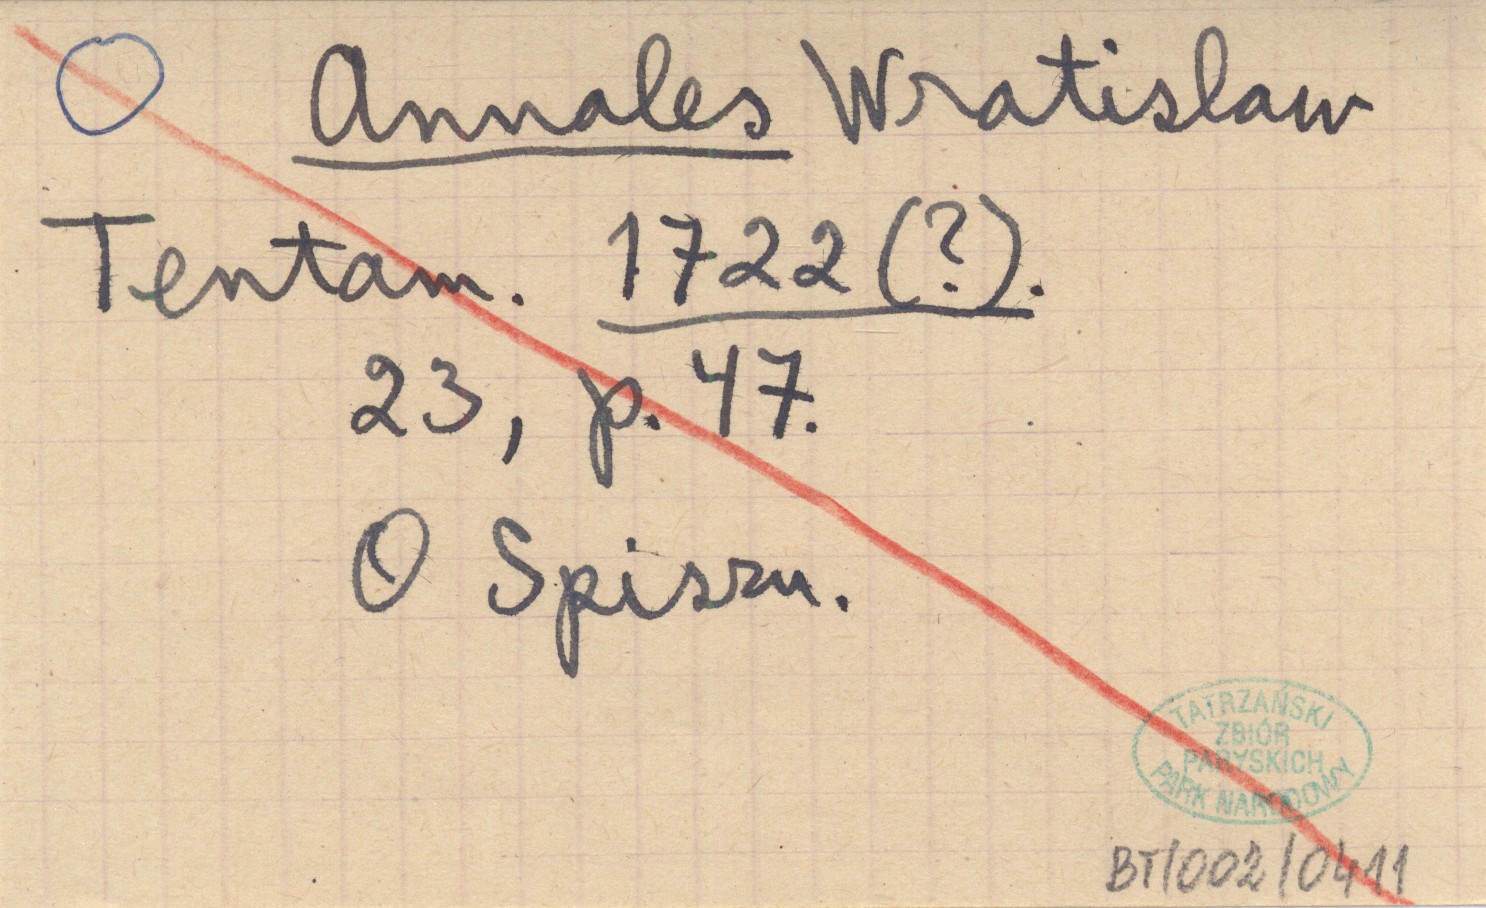 Annales Wratislaw
Tentam. 1722 (?).
23, p. 47.
O Spiszu.
TATRZAŃSKI
ZBIÓR
PARYSKICH
PARK NARODOWY
BT/002/0411